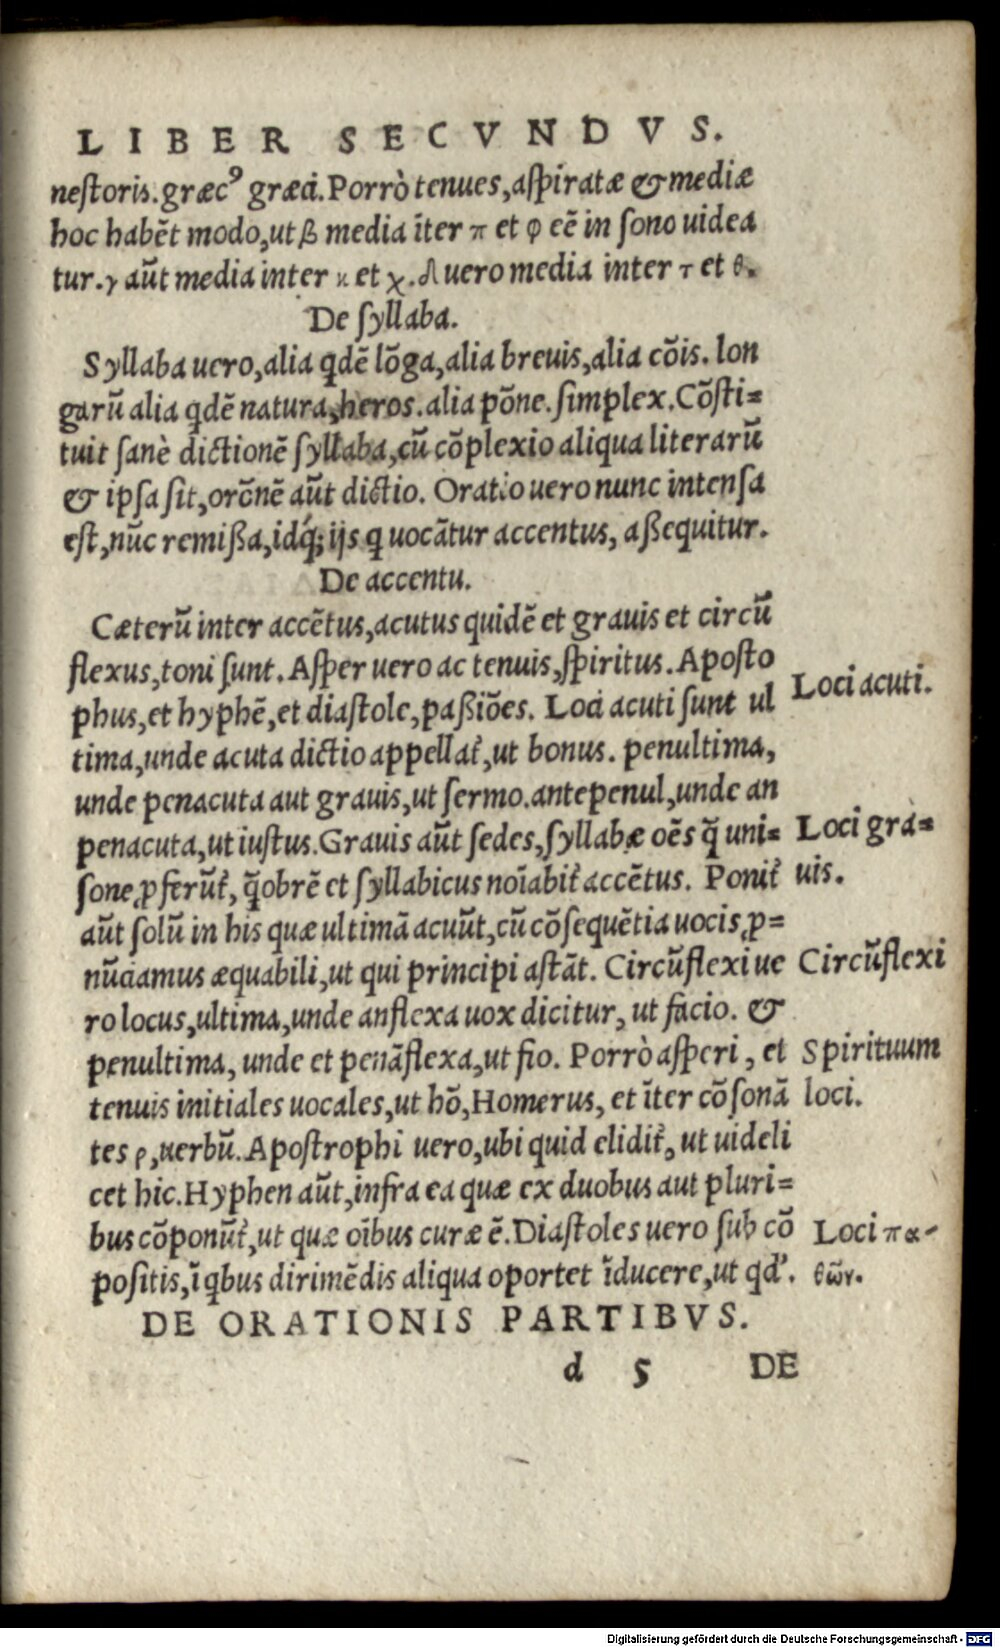 LIBER SECVNDVS.
neſtoris. græcꝰ græci. Porrò tenues, aſpiratæ & mediæ
hoc habēt modo, ut β media īter π et φ eē in ſono uidea
tur. γ aūt media inter κ et χ. δ uero media inter τ et θ.
De ſyllaba.
Syllaba uero, alia qdē lōga, alia breuis, alia cōis. lon
garū alia qdē natura, heros. alia pōne. ſimplex. Cōſti=
tuit ſanè dictionē ſyllaba, cū cōplexio aliqua literarū
& ipſa ſit, orōnē aūt dictio. Oratio uero nunc intenſa
eſt, nūc remiſſa, idq́; ijs q uocātur accentus, aſſequitur.
De accentu.
Cæterū inter accētus, acutus quidē et grauis et circū
flexus, toni ſunt. Aſper uero ac tenuis, ſpiritus. Apoſto
phus, et hyphē, et diaſtole, paſſiōes. Loci acuti ſunt ul
Loci acuti.
tima, unde acuta dictio appellat̄, ut bonus. penultima,
unde penacuta aut grauis, ut ſermo. antepenul, unde an
penacuta, ut iuſtus. Grauis aūt ſedes, ſyllabæ oēs q̄ uni=
Loci gra=
ſone ꝓferūt̄, q̄obrē et ſyllabicus noīabit̄ accētus. Ponit̄
uis.
aūt ſolū in his quæ ultimā acuūt, cū cōſequētia uocis ꝓ=
nūciamus æquabili, ut qui principi aſtāt. Circūflexi ue
Circūflexi
ro locus, ultima, unde anflexa uox dicitur, ut facio. &
penultima, unde et penāflexa, ut fio. Porrò aſperi, et
Spirituum
tenuis initiales uocales, ut hō, Homerus, et īter cōſonā
loci.
tes ρ, uerbū. Apoſtrophi uero, ubi quid elidit̄, ut uideli
cet hic. Hyphen aūt, infra ea quæ ex duobus aut pluri=
bus cōponūt̄, ut quæ oībus curæ ē. Diaſtoles uero ſub cō
Loci πα-
poſitis, ī qbus dirimēdis aliqua oportet īducere, ut qd'.
θῶν.
DE ORATIONIS PARTIBVS.
d 5 DE
Digitalisierung gefördert durch die Deutsche Forschungsgemeinschaft - DFG